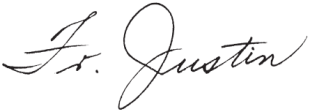 Fr. Justin